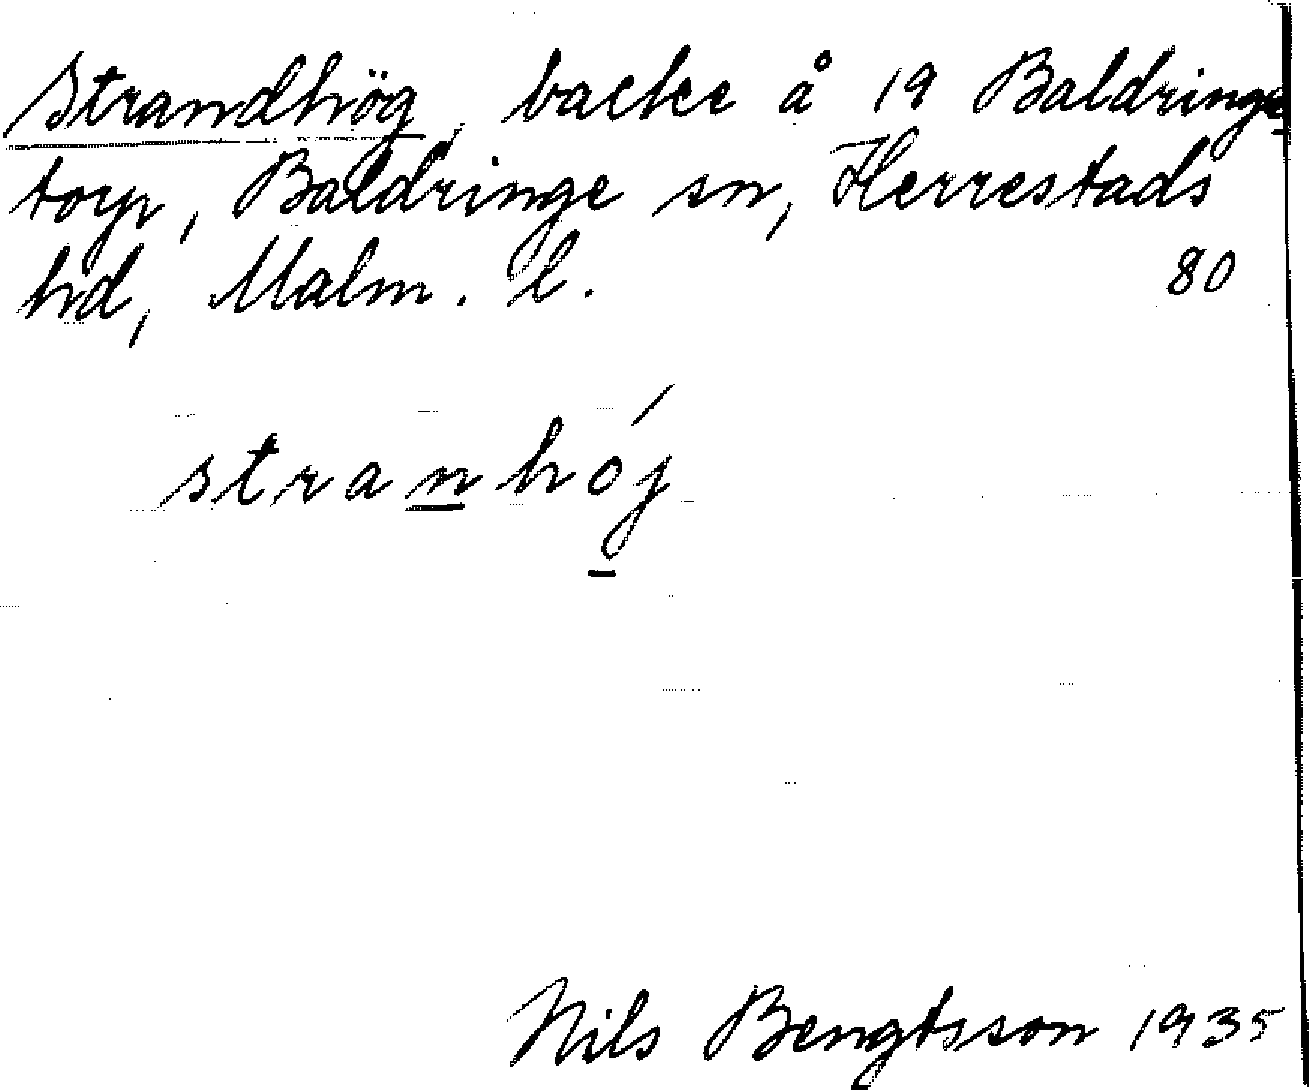 Strandhög, backe å 19 Baldringe
torp, Baldringe sn, Herrestads
hd, Malm. l. 80
stranhój
Nils Bengtsson 1935